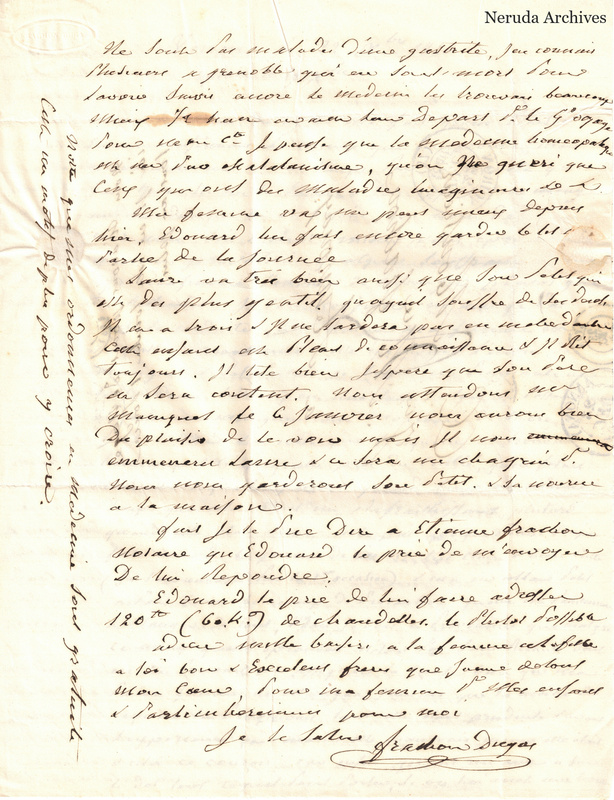 Neruda Archives
Ne sont pas malades d'une gastrite, j'en connais
plusieurs a grenoble qui en sont mort pour
savoir suivis encore le medecin les trouvait beaucoup
mieux avant leur Depart P. le Gd voyage
pour mon Cte je pense que la medecine homeopatique
est un pur charlatanisme, qu'on Ne gueri que
Ceux qui ont des Maladie Imaginaires
Ma femme va un peu mieux depuis
hier, Edouard lui fait encore garder le lit
Partie de la journée
Laure va tres bien ainsi que Son Petit qui
est des plus gentil. quoique Souffre de ses dents
Il en a trois & Il ne tardera pas en mettre d'autre
Cette enfant est Pleine de connaissance & Il Rit
toujours. Il tete bien J'espere que Son Pere
en Sera content. Nous attendons
le 6 Janvier nous aurons bien
Du plaisir de le voir mais Il nous
emmenera Laure & ce Sera un chagrin P.
Nous nous garderons Son Petit. & Sa nourrice
a la maison.
fais Je te Prie Dire a Etienne frachon
Notaire qu'Edouard le prie de m'envoyer
De lui Repondre.
Edouard te prie de lui faire adresser
120 tt (60 k.) de chandelles. le Plutot Possible
adieu mille baisers a ta femme
a toi bon & Excelent frere que J'aime de tous
Mon Cœur Pour ma femme P. Mes enfans
& Particulièrement pour moi
Je te Salue frachon Dugas
Note que ses ordonances en Medecine Sont gratuite
Cette un motif de plus pour y croire.